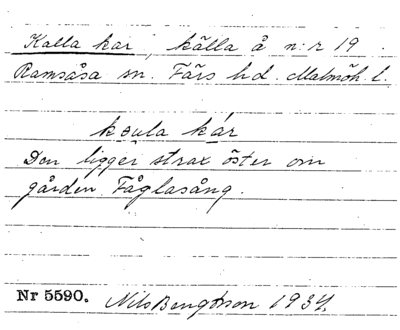 Kalla kar, källa å n:r 19.
Ramsåsa sn. Färs hd. Malmöh. l.
kaula kár
Den ligger strax öster om
gården Fåglasång.
Nr 5590. Nils Bengtsson 1934.